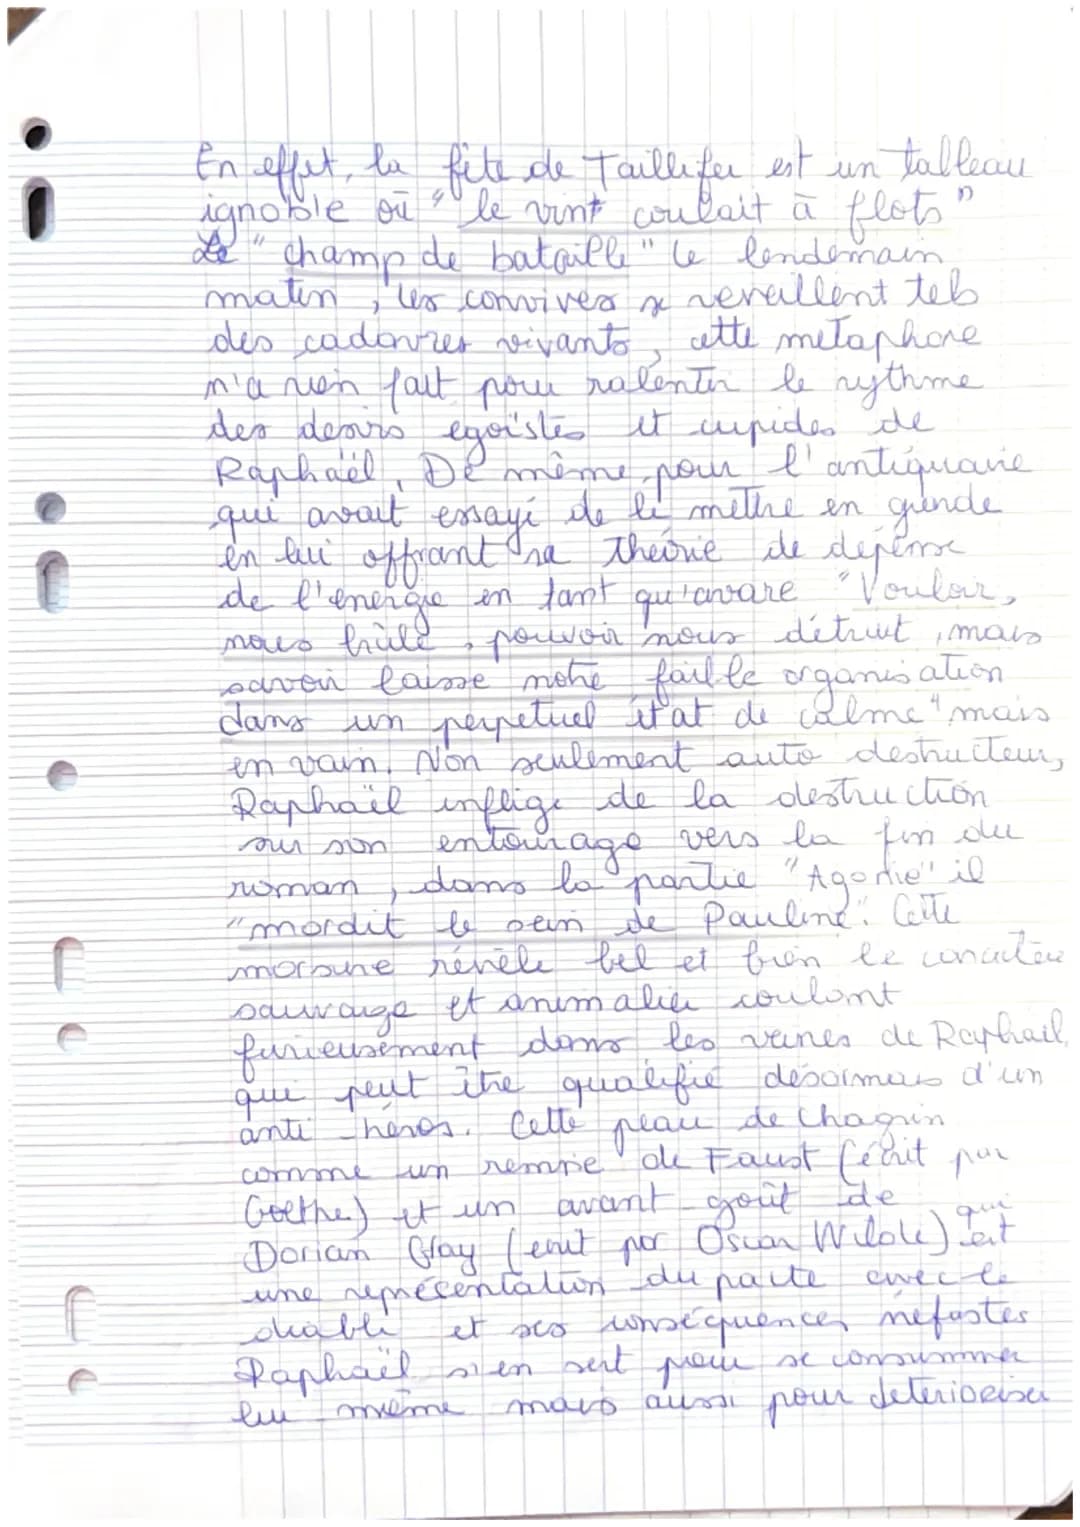 En effet, la fête de Taillefer est un tableau
ignoble où "le vint coulait à flots"
Le "champ de bataille" le lendemain
matin, les convives se reveillent tels
des cadavres vivants, cette metaphore
n'a rien fait pour ralentir le rythme
des desirs egoïstes et cupides de
Raphaël. De même pour l'antiquaire
qui avait essayé de le mettre en garde
en lui offrant sa theorie de dépense
de l'énergie en tant qu'avare "Vouloir,
nous brûle, pouvoir nous détruit, mais
savoir laisse notre faible organisation
dans un perpetuel état de calme" mais
en vain. Non seulement auto destructeur,
Raphaël inflige de la destruction
sur son entourage vers la fin du
roman, dans la partie "Agonie" il
"mordit le sein de Pauline". Cette
morsure révèle bel et bien le caractère
sauvage et animalier coulant
furieusement dans les veines de Raphaël,
qui peut être qualifié désormais d'un
anti-héros. Cette peau de chagrin
comme un remrie de Faust (écrit par
Goethe) et un avant-goût de
Dorian Gray (ecrit par Oscar Wilde) qui est
une représentation du pacte avec le
diable et ses conséquences néfastes
Raphaël s'en sert pour se consummer
lui même mais aussi pour deterioriser